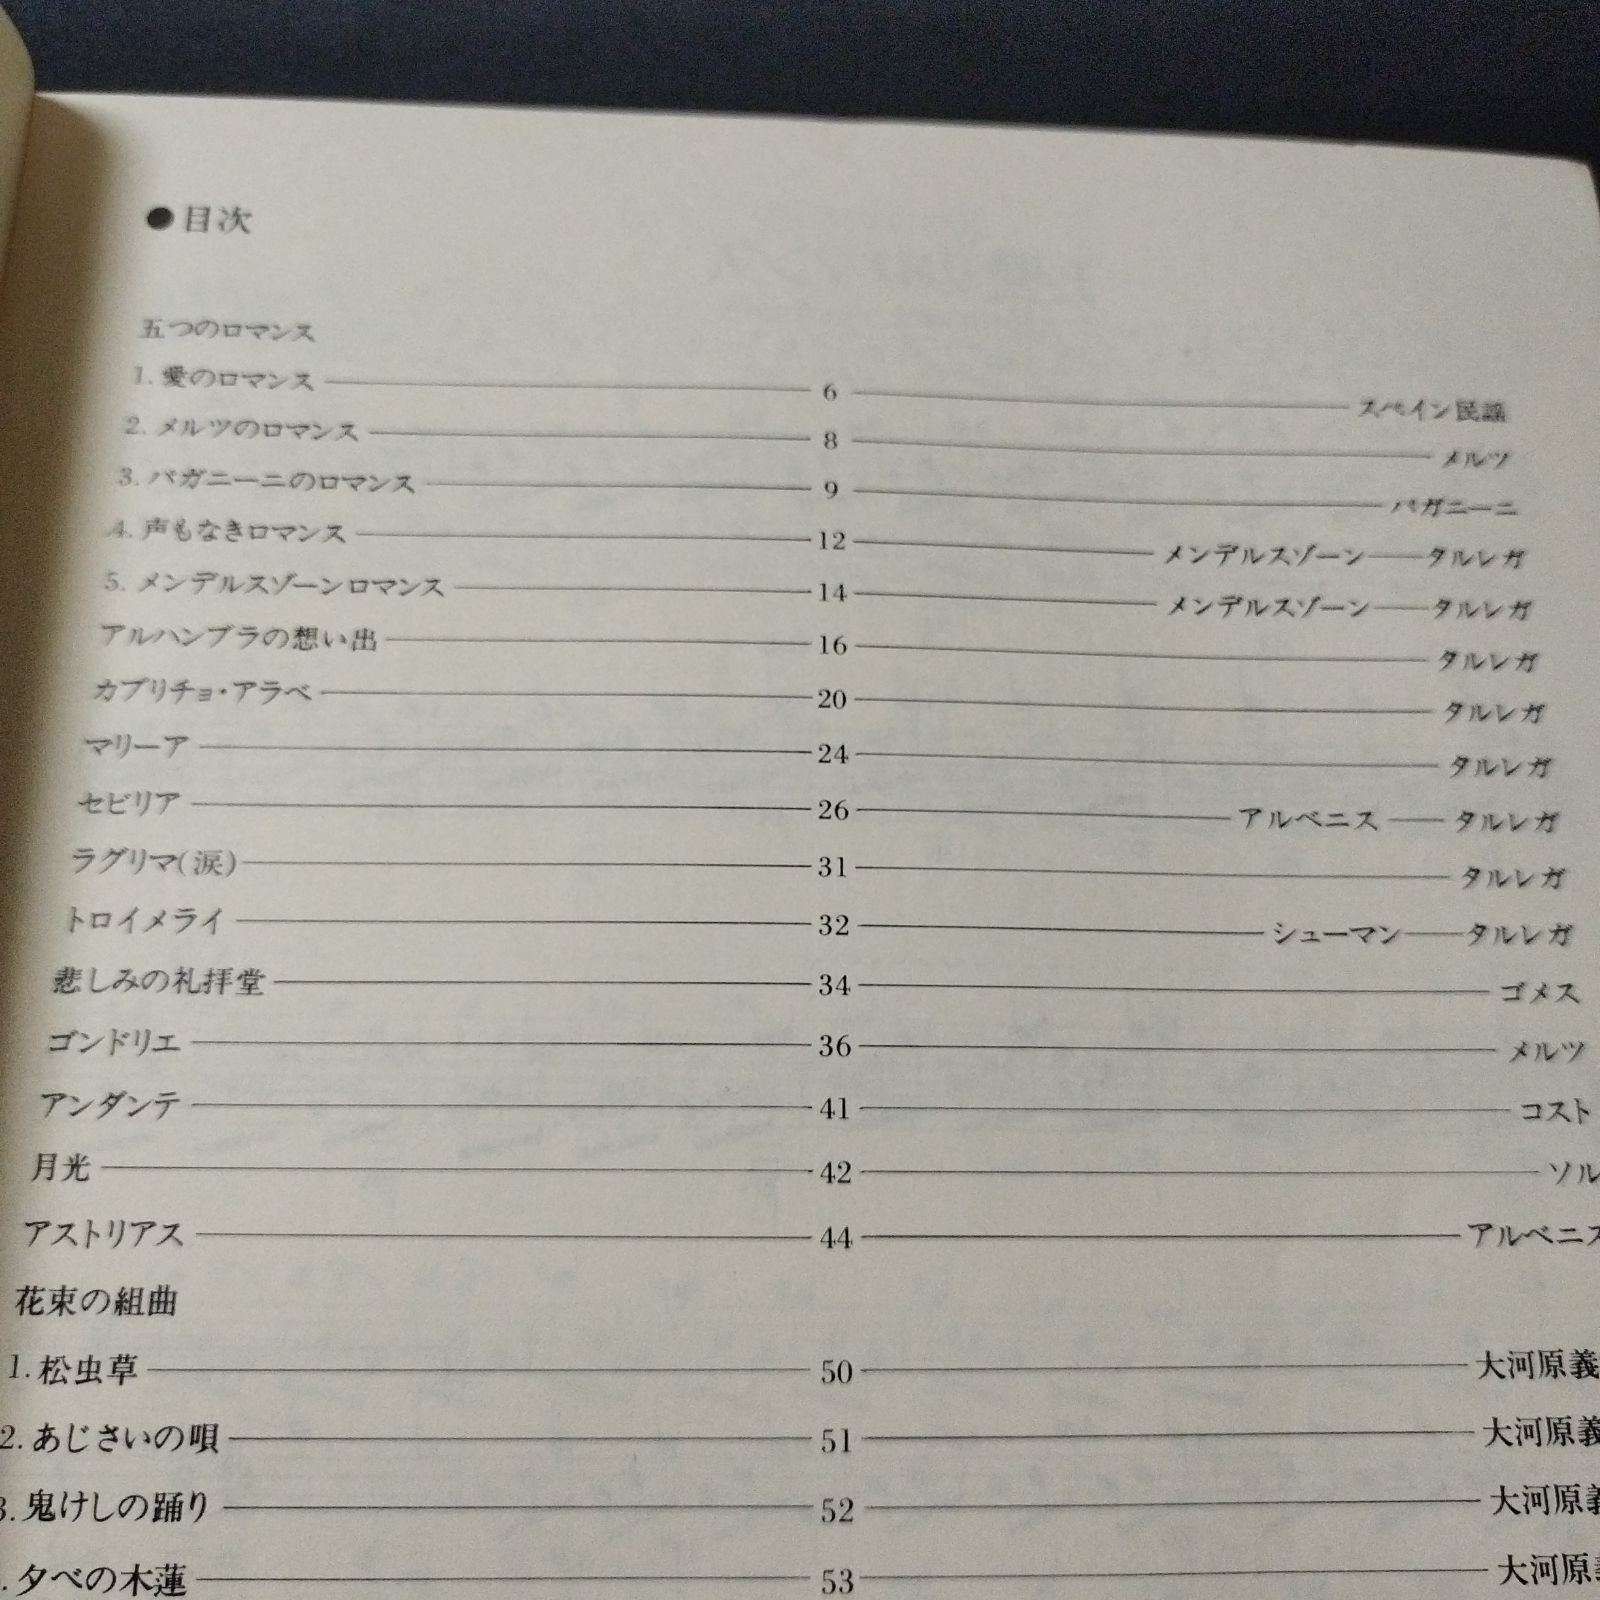 ●目次
五つのロマンス
1. 愛のロマンス 6 スペイン民謡
2. メルツのロマンス 8 メルツ
3. パガニーニのロマンス 9 パガニーニ
4. 声もなきロマンス 12 メンデルスゾーン——タルレガ
5. メンデルスゾーンロマンス 14 メンデルスゾーン——タルレガ
アルハンブラの想い出 16 タルレガ
カプリチョ・アラベ 20 タルレガ
マリーア 24 タルレガ
セビリア 26 アルベニス——タルレガ
ラグリマ(涙) 31 タルレガ
トロイメライ 32 シューマン——タルレガ
悲しみの礼拝堂 34 ゴメス
ゴンドリエ 36 メルツ
アンダンテ 41 コスト
月光 42 ソル
アストリアス 44 アルベニス
花束の組曲
1. 松虫草 50 大河原義
2. あじさいの唄 51 大河原義
3. 鬼けしの踊り 52 大河原義
. 夕べの木蓮 53 大河原